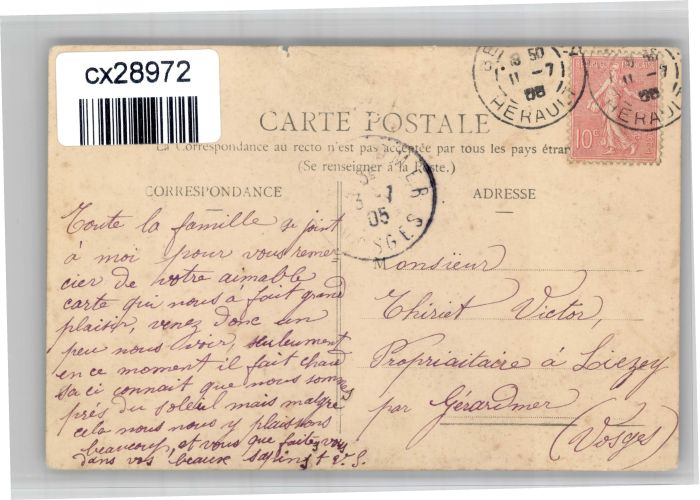 cx28972
18 50
11 -7
05
HERAULT
11 -7
HERAULT
REPUBLIQUE FRANÇAISE
10c
CARTE POSTALE
La Correspondance au recto n'est pas acceptée par tous les pays étran
(Se renseigner à la Poste.)
MER
05
VOSGES
CORRESPONDANCE
Toute la famille se joint
à moi pour vous remer
cier de votre aimable
carte qui nous a fait grand
plaisir, venez donc un
peu nous voir, seuleument
en ce moment il fait chaud
sa ci connait que nous sommes
prés du soleiul mais malgre
cela nous nous y plaisons
beaucoup, et vous que faites vous
dans vos beaux sapins
ADRESSE
Monsieur
Thiriet Victor,
Propriaitaire à Liezey
par Gérardmer
(Vosges)